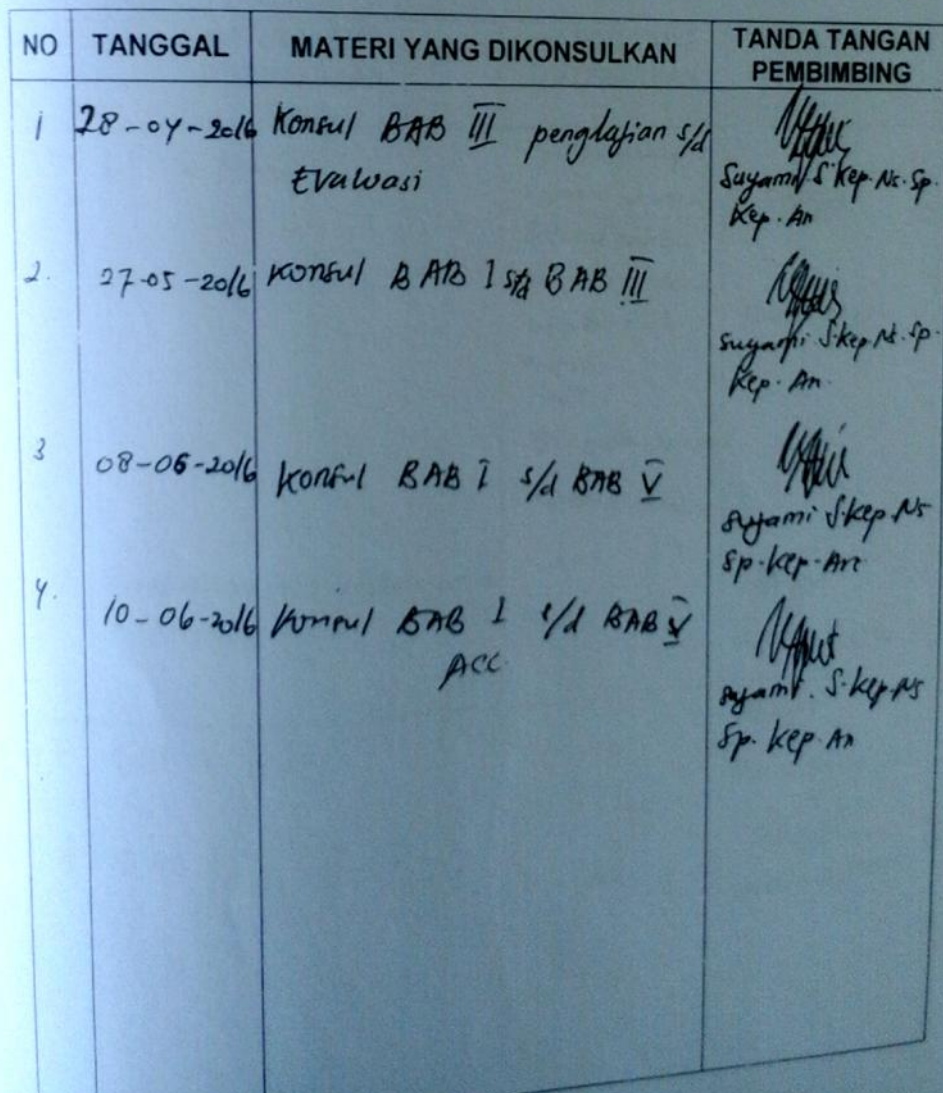 NO TANGGAL MATERI YANG DIKONSULKAN TANDA TANGAN PEMBIMBING
1 28-04-2016 Konsul BAB III pengkajian s/d
Evaluasi
Suyami S.Kep.Ns.Sp.
Kep.An
2. 27-05-2016 Konsul BAB I s/d BAB III
Suyami S.Kep.Ns.Sp.
Kep.An
3 08-06-2016 Konsul BAB I s/d BAB V
Suyami S.Kep.Ns
Sp.Kep.An
4. 10-06-2016 Konsul BAB I s/d BAB V
ACC
Suyami. S.Kep.Ns
Sp.Kep.An